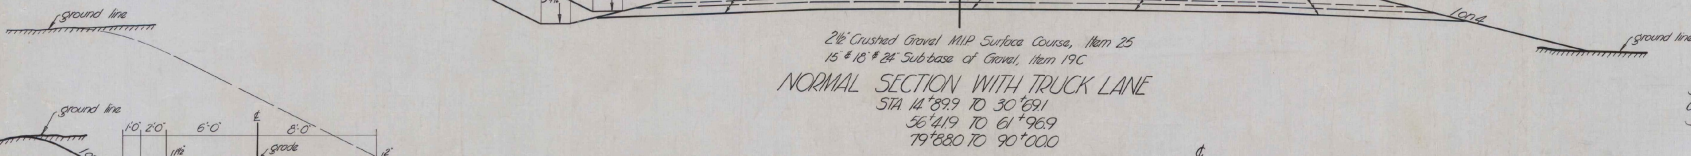 ground line
1 on 4
ground line
2½" Crushed Gravel M.I.P. Surface Course, Item 25
15" & 18" & 24" Subbase of Gravel, Item 19C
NORMAL SECTION WITH TRUCK LANE
STA 14+89.9 TO 30+69.1
56+41.9 TO 61+96.9
79+88.0 TO 90+00.0
ground line
1'-0" 2'-0" 6'-0" ℄ 8'-0"
grade
℄